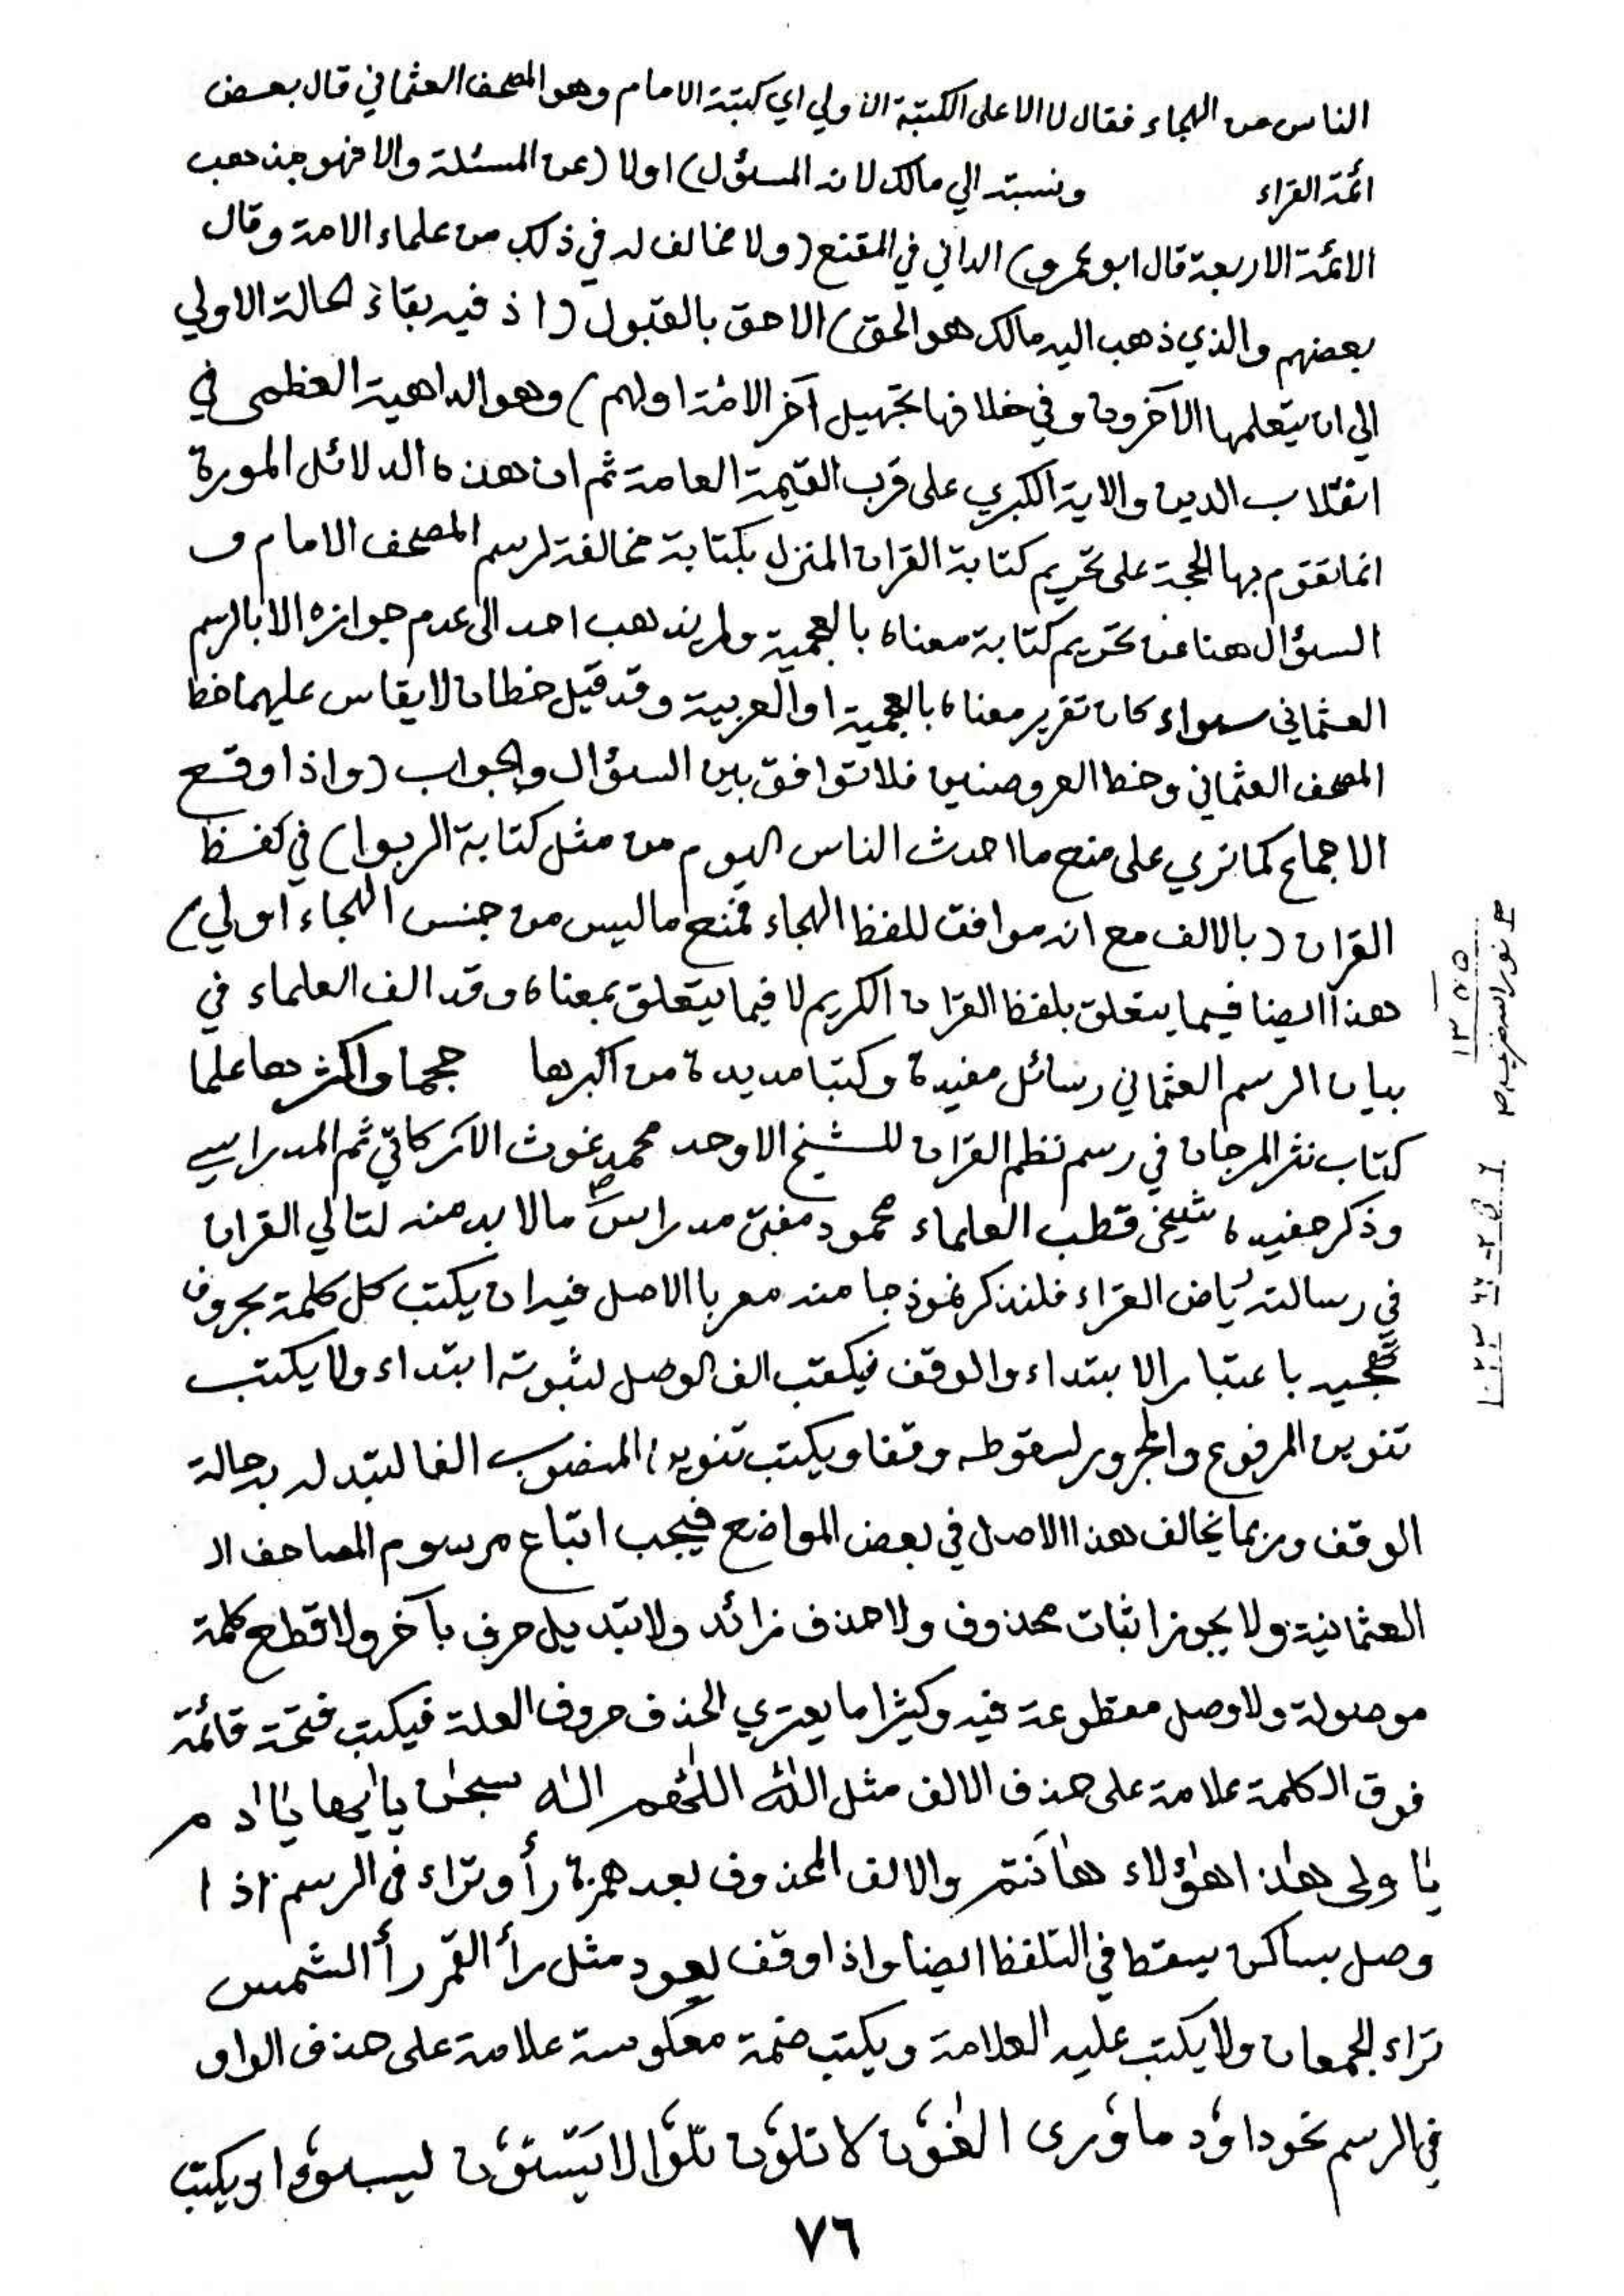 الناس من الهجاء فقال لا الا على الكتبة الاولي اي كتبة الامام وهو المصحف العثماني قال بعض
ائمة القراء ونسبته الي مالك لانه المسئول) اولا (عن المسئلة والا فهو مذهب
الائمة الاربعة قال ابو عمرو) الداني في المقنع (ولا مخالف له في ذلك من علماء الامة وقال
بعضهم والذي ذهب اليه مالك هو الحق) الاحق بالقبول (اذ فيه بقاء الحالة الاولي
الي ان يتعلمها الآخرون وفي خلافها تجهيل آخر الامة اولهم) وهو الداهية العظمى في
انقلاب الدين والاية الكبري على قرب القيمة العامة ثم ان هذه الدلائل المورة
انما تقوم بها الحجة على تحريم كتابة القران المنزل بكتابة مخالفة لرسم المصحف الامام و
السؤال هنا عن تحريم كتابة معناه بالعجمية ولم يذهب احد الى عدم جوازه الا بالرسم
العثماني سواء كان تقرير معناه بالعجمية او العربية وقد قيل خطان لا يقاس عليهما خط
المصحف العثماني وخط العروضيين فلا توافق بين السؤال والجواب (واذا وقع
الاجماع كما تري على منع ما احدث الناس اليوم من مثل كتابة الربوا) في لفظ
القران (بالالف مع انه موافق للفظ الهجاء فمنع ما ليس من جنس الهجاء اولي)
هذا ايضا فيما يتعلق بلفظ القران الكريم لا فيما يتعلق بمعناه وقد الف العلماء في
بيان الرسم العثماني رسائل مفيدة وكتبا مديدة من اكبرها حجما واكثرها علما
كتاب نثر المرجان في رسم نظم القران للشيخ الاوحد محمد غوث الاركاتي ثم المدراسي
وذكر حفيده شيخي قطب العلماء محمود مفتي مدراس مالا بد منه لتالي القران
في رسالته رياض القراء فلنذكر نموذجا منه معربا الاصل فيه ان يكتب كل كلمة بحروف
تهجيه باعتبار الابتداء والوقف فيكتب الف الوصل لثبوته ابتداء ولا يكتب
تنوين المرفوع والمجرور لسقوطه وقفا ويكتب تنوين المنصوب الفا لتبدله به حالة
الوقف وربما يخالف هذا الاصل في بعض المواضع فيجب اتباع مرسوم المصاحف ال
العثمانية ولا يجوز اثبات محذوف ولا حذف زائد ولا تبديل حرف بآخر ولا قطع كلمة
موصولة ولا وصل مقطوعة فيه وكثيرا ما يعتري الحذف حروف العلة فيكتب فتحة قائمة
فوق الكلمة علامة على حذف الالف مثل الله اللهم اله سبحٰن يايها يٰادم
يٰاولى هٰذا هٰؤلاء هٰانتم والالف المحذوف بعد همزة رأ وتراء في الرسم اذا
وصل بساكن يسقط في التلفظ ايضا واذا وقف يعود مثل رأ القمر رأ الشمس
تراء الجمعان ولا يكتب عليه العلامة ويكتب ضمة معكوسة علامة على حذف الواو
في الرسم نحو داود ماوري الغون لا تلون تلوا لا يستون ليسوءا ويكتب
٧٦
١٣٥٥